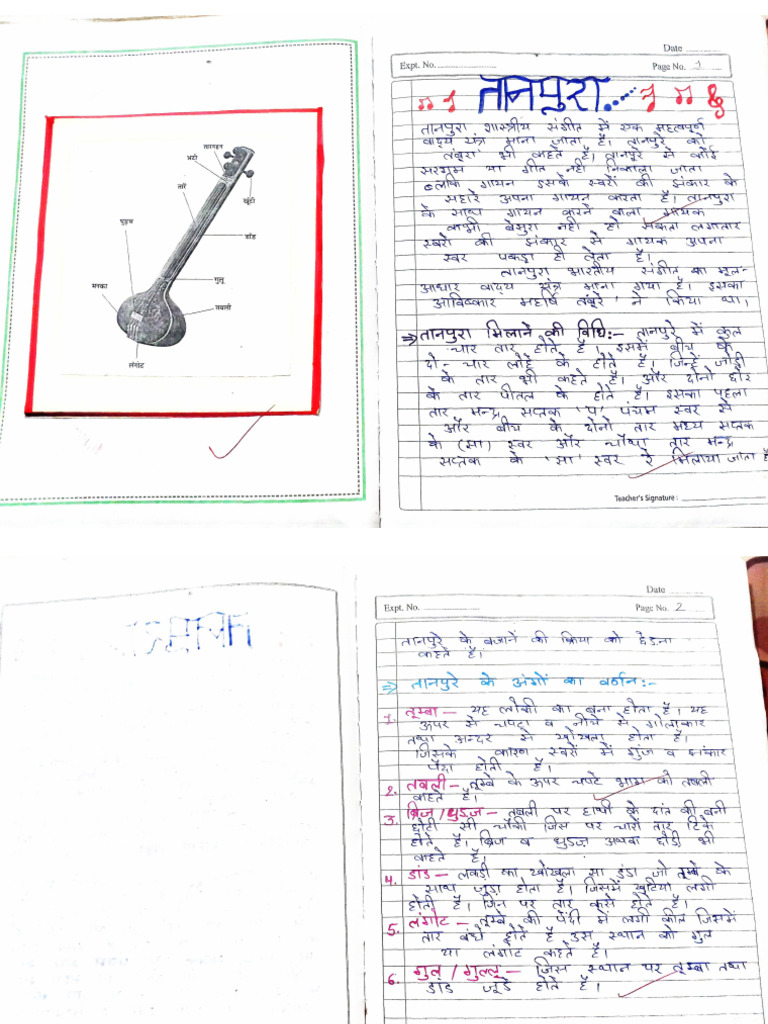 तारगहन
अटी
तारें
खूंटी
घुड़च
डाँड
मनका
गुलू
तबली
लंगोट
Date
Expt. No.
Page No. 1
तानपुरा
तानपुरा शास्त्रीय संगीत में एक महत्वपूर्ण
वाद्य यंत्र माना जाता है। तानपुरे को
तंबूरा भी कहते है। तानपुरे से कोई
सरगम या गीत नही निकाला जाता
ब्लकि गायन इसके स्वरों की झंकार के
सहारे अपना गायन करता है। तानपुरा
के साथ गायन करने वाला गायक
कभी बेसुरा नही हो सकता लगातार
स्वरों की झंकार से गायक अपना
स्वर पकड़ा ही लेता है।
तानपुरा भारतीय संगीत का मूल-
आधार वाद्य यंत्र माना गया है। इसका
आविष्कार महर्षि तंबूरे ने किया था।
⇒ तानपुरा मिलाने की विधि:- तानपुरे में कुल
चार तार होते है। इसमें बीच के
दो- चार लोहे के होते है। जिन्हें जोड़ी
के तार भी कहते है। और दोनो छोर
के तार पीतल के होते है। इसका पहला
तार मन्द्र सप्तक 'प' पंचम स्वर से
और बीच के दोनो तार मध्य सप्तक
के (सा) स्वर और चौथा तार मन्द्र
सप्तक के 'सा' स्वर से मिलाया जाता है
Teacher's Signature :
Date
Expt. No.
Page No. 2
तानपुरे के बजानें की क्रिया को छेड़ना
कहते है।
⇒ तानपुरे के अंगों का वर्णन:-
1. तूम्बा – यह लौकी का बना होता है। यह
ऊपर से चपटा व नीचे से गोलाकार
तथा अन्दर से खोखला होता है।
जिसके कारण स्वरों में गुंज व झंकार
पैदा होती है।
2. तबली – तूम्बे के ऊपर चपटे भाग को तबली
कहते है।
3. ब्रिज / घुड़ज – तबली पर हाथी के दांत की बनी
छोटी सी चौकी जिस पर चारों तार टिके
होते है। ब्रिज व घुड़ज अथवा घोड़ी भी
कहते है।
4. डांड – लकड़ी का खोखला सा डंडा जो तूम्बे के
साथ जुड़ा होता है। जिसमें खूंटिया लगी
होती है। जिन पर तार कसे होते है।
5. लंगोट – तूम्बे की पेंदी में लगी कील जिसमें
तार बंधे होते है उस स्थान को गुल
या लंगोट कहते है।
6. गुल / गुल्लू – जिस स्थान पर तूम्बा तथा
डांड जूडे होते है।